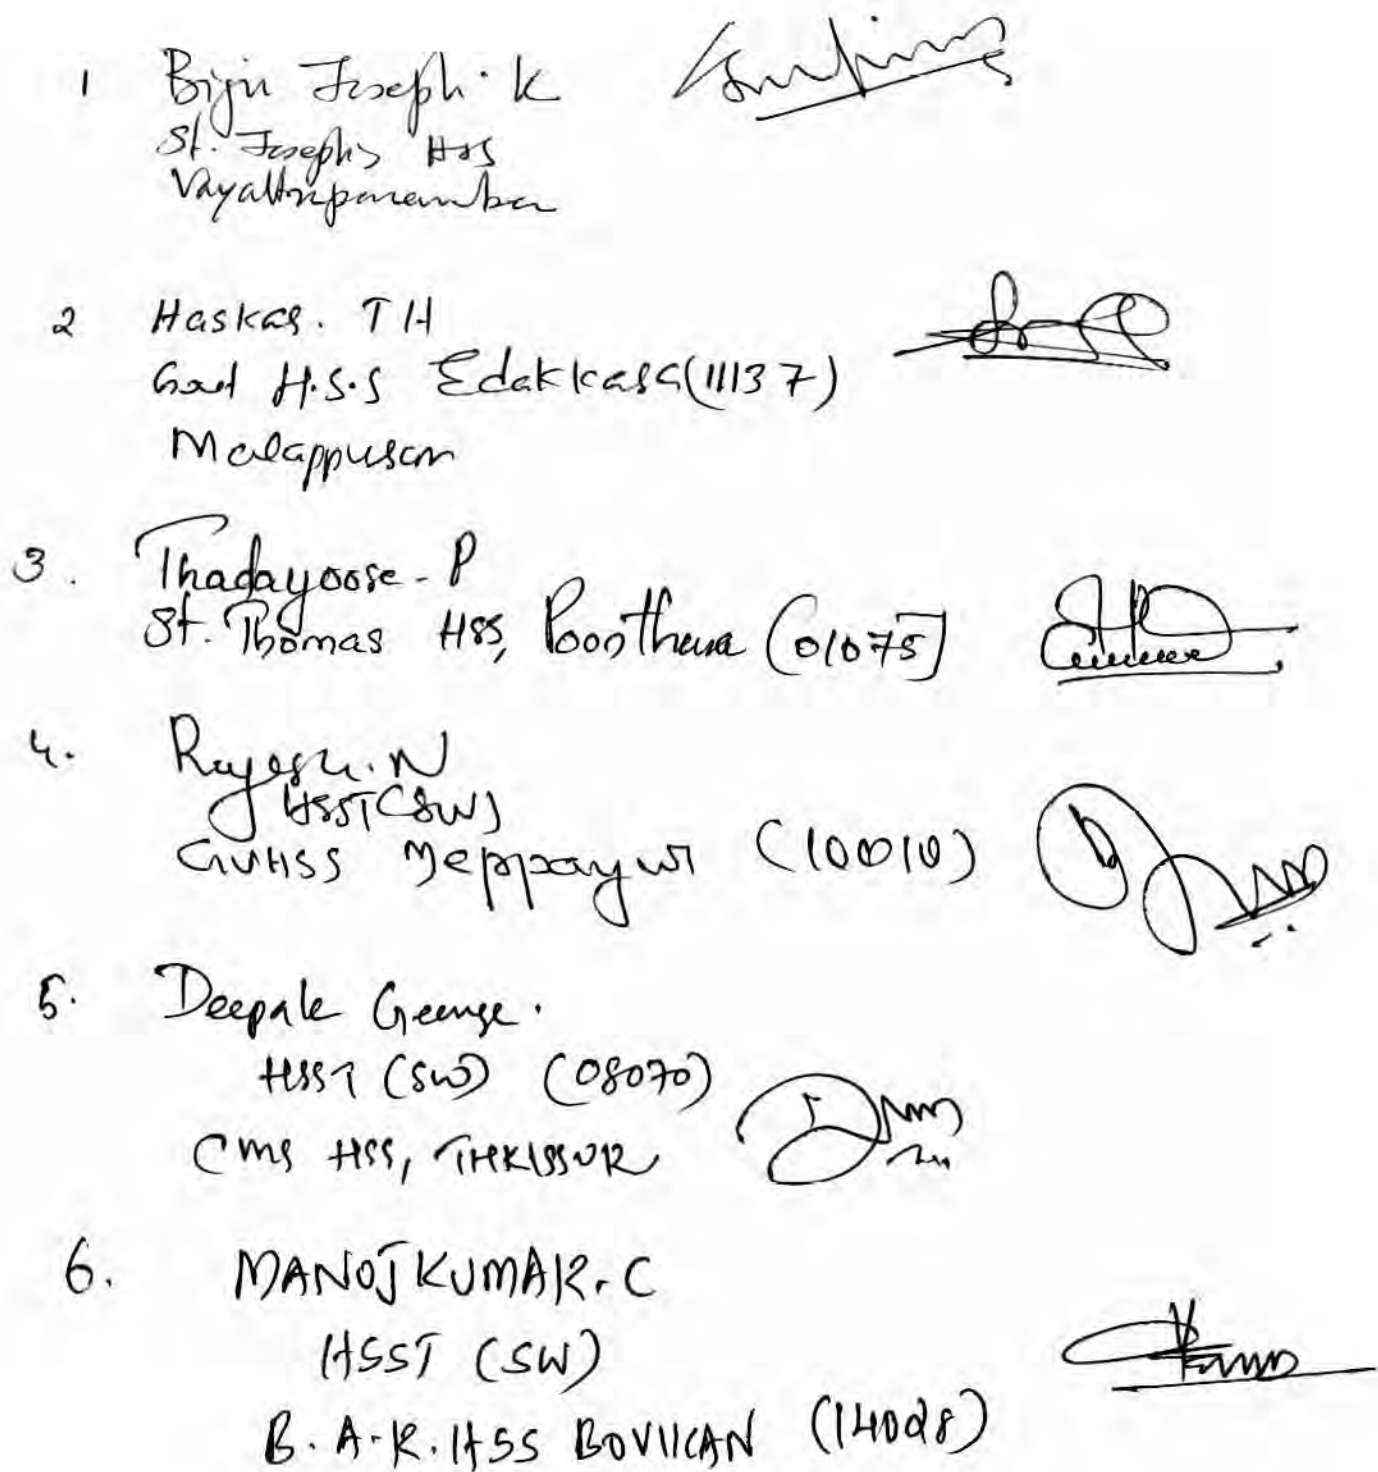 1 Biju Joseph. K
St. Joseph's HSS
Vayattuparamba
2 Haskar. TH
Govt H.S.S Edakkara (11137)
Malappuram
3. Thadayoose - P
St. Thomas HSS, (01075)
4. Rajesh. N
HSST (SW)
GVHSS Meppayur (10010)
5. Deepak George.
HSST (SW) (08070)
CMS HSS, THRISSUR
6. MANOJKUMAR. C
HSST (SW)
B. A. R. HSS BOVIKAN (14028)